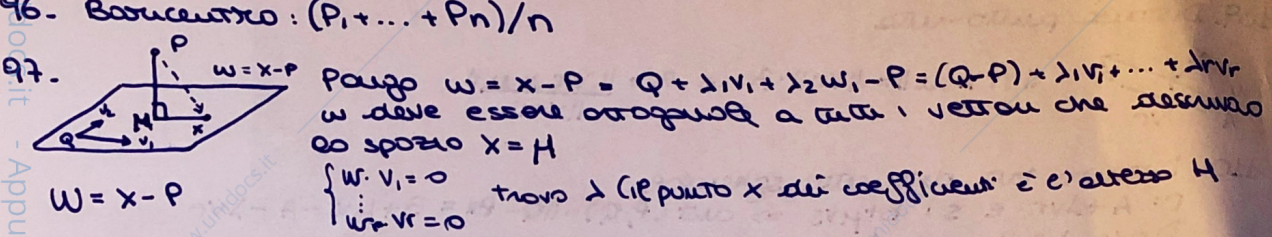 96. Baricentro: (P₁+...+Pn)/n
97.
P
w = x-P
Q
v₁
M
x
Pongo w = x - P = Q + λ₁v₁ + λ₂w₁ - P = (Q-P) + λ₁v₁ + ... + λrvr
w deve essere ortogonale a tutti i vettori che descrivono
lo spazio x = H
W = x - P
{ w · v₁ = 0
⋮
w · vr = 0
trovo λ (il punto x dei coefficienti è l'altezza H.
docs.it - Appu
www.unidocs.it